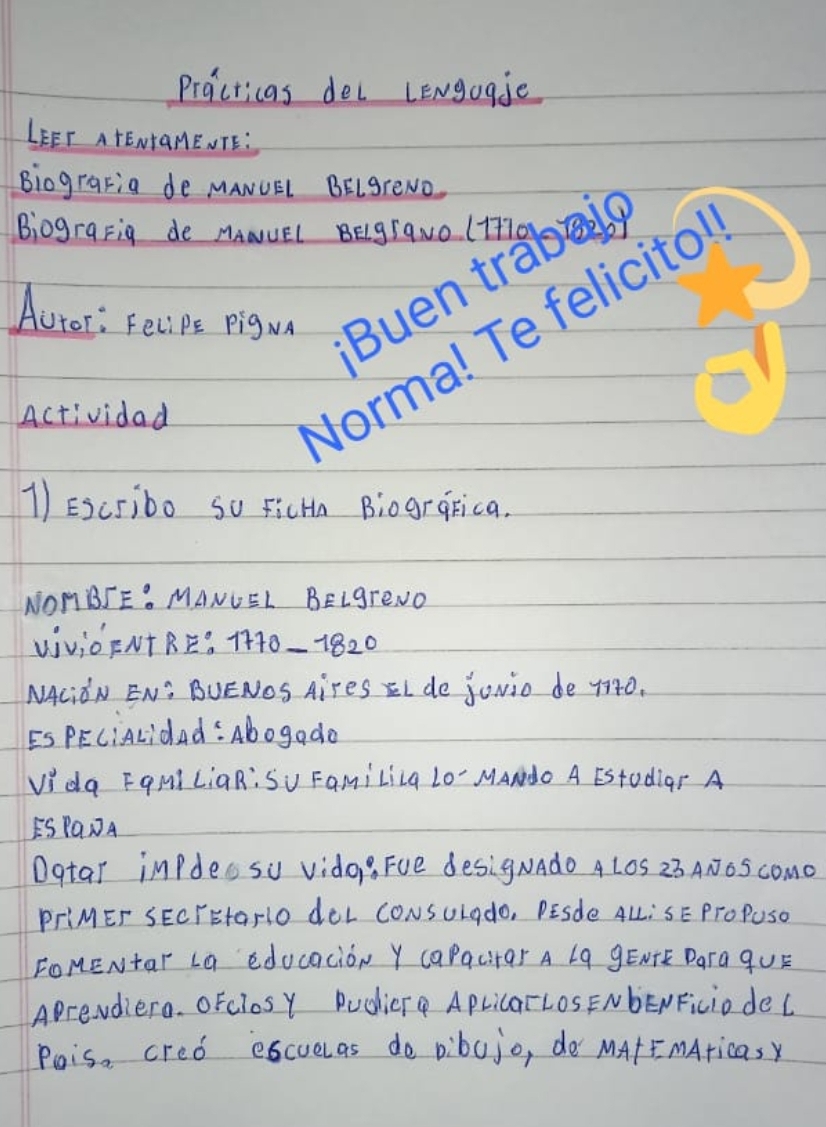 Prácticas del Lenguaje
Leer atentamente:
Biografia de Manuel Belgreno
Biografia de Manuel Belgrano (1770 - 1820)
¡Buen trabajo
Norma! Te felicito!!
Autor: Felipe Pigna
Actividad
1) Escribo su ficha Biográfica.
Nombre: Manuel Belgreno
Vivió entre: 1770 - 1820
Nación en: Buenos Aires el de junio de 1770.
Especialidad: Abogado
Vida familiar: su familila lo mando a estudiar a
España
Datar impde su vida: fue designado a los 23 años como
primer secretario del consulado. Desde alli se propuso
fomentar la educación y capacitar a la gente para que
aprendiera. ofcios y pudiera aplicarlos en benficio del
pais. creó escuelas de dibujo, de matemáticas y